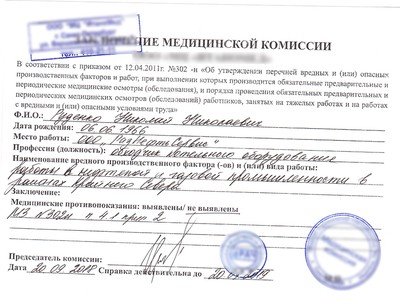 ЗАКЛЮЧЕНИЕ МЕДИЦИНСКОЙ КОМИССИИ
В соответствии с приказом от 12.04.2011г. №302 -н «Об утверждении перечней вредных и (или) опасных
производственных факторов и работ, при выполнении которых производятся обязательные предварительные и
периодические медицинские осмотры (обследования), и порядка проведения обязательных предварительных и
периодических медицинских осмотров (обследований) работников, занятых на тяжелых работах и на работах
с вредными и (или) опасными условиями труда»
Ф.И.О.: Руденко Николай Николаевич
Дата рождения: 06.06.1966
Место работы: ООО
Профессия (должность): обходчик котельного оборудования
Наименование вредного производственного фактора (-ов) и (или) вида работы:
работы в нефтяной и газовой промышленности в
районах Крайнего Севера
Заключение:
Медицинские противопоказания: выявлены/ не выявлены
МЗ №302н п 4.1 прил 2
Председатель комиссии:
Дата 20.09.2018 Справка действительна до